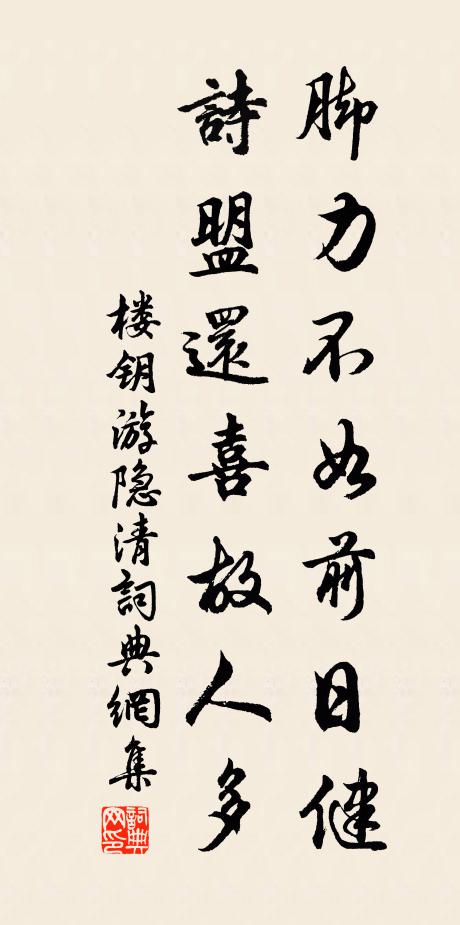 脚力不如前日健
詩盟還喜故人多
楼钥游隐清詞典網集
詞典
网印